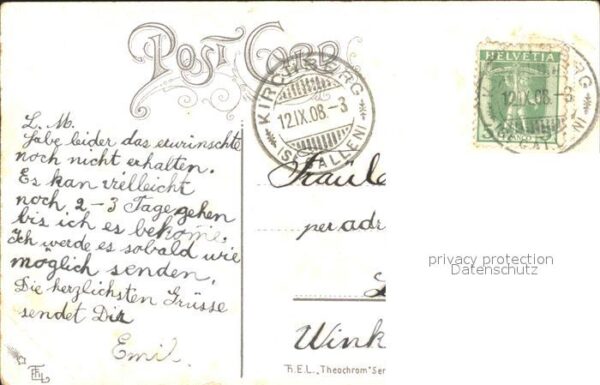 POST CARD
KIRCHBERG
12.IX.08.-3
(ST. GALLEN)
HELVETIA
12.IX.08.-3
L. M.
Habe leider das ewünschte
noch nicht erhalten.
Es kan vielleicht
noch 2-3 Tage gehen
bis ich es bekome.
Ich werde es sobald wie
möglich senden.
Die herzlichsten Grüsse
sendet Dir
Emil.
Fräule
per adr
Wink
privacy protection
Datenschutz
Th.E.L. „Theochrom" Ser